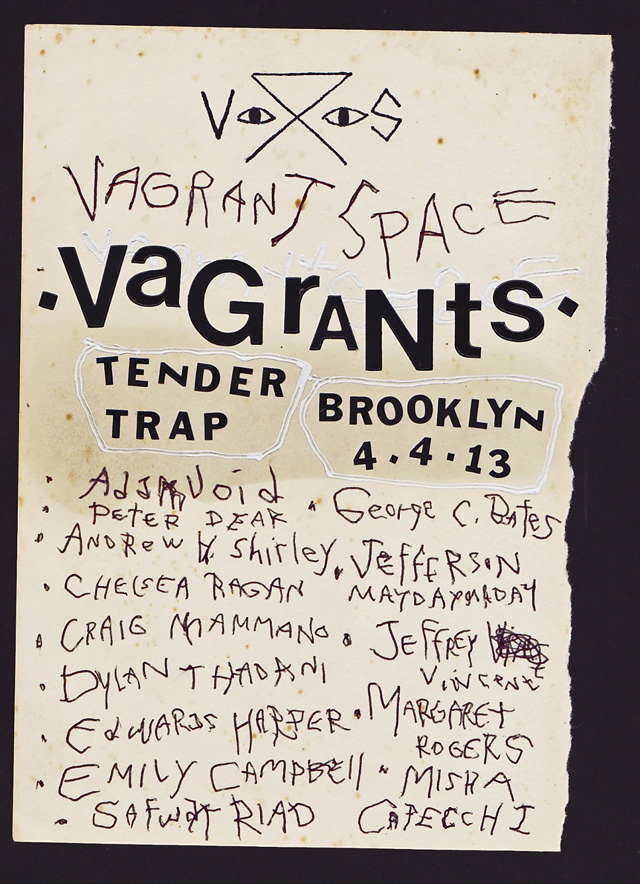 VS
VAGRANT SPACE
·VaGrANts·
TENDER
TRAP
BROOKLYN
4.4.13
Adam Void
PETER DEAR
· ANDREW H. Shirley
· CHELSEA RAGAN
· CRAIG MAMMANO
· DYLAN THADANI
· EDWARDS HARPER
· EMILY CAMPBEll
· SAFWAT RIAD
· George C. Bates
· JEFFERSON
MAYDAYMAYDAY
· JEFFREY
VINCENT
· MARGAREt
ROGERS
· MISHA
CAPECCHI